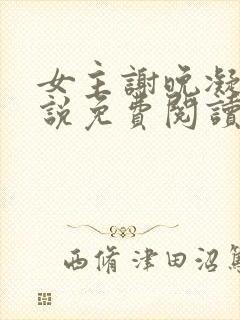 女主謝晚凝
說免費閱讀
西脩津田沼篤